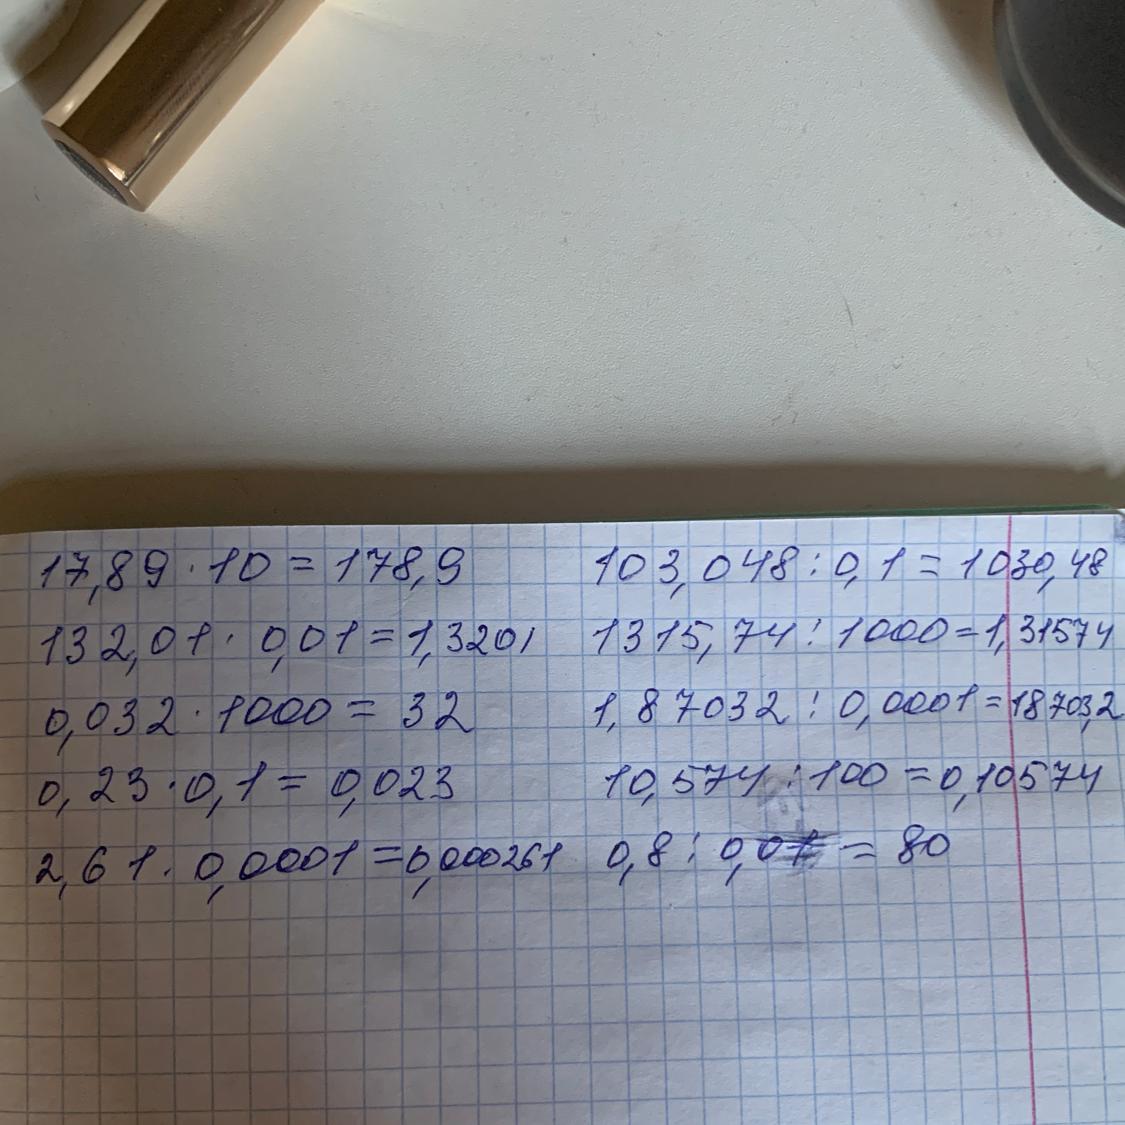 17,89 · 10 = 178,9
132,01 · 0,01 = 1,3201
0,032 · 1000 = 32
0,23 · 0,1 = 0,023
2,61 · 0,0001 = 0,000261
103,048 : 0,1 = 1030,48
1315,74 : 1000 = 1,31574
1,87032 : 0,0001 = 18703,2
10,574 : 100 = 0,10574
0,8 : 0,01 = 80